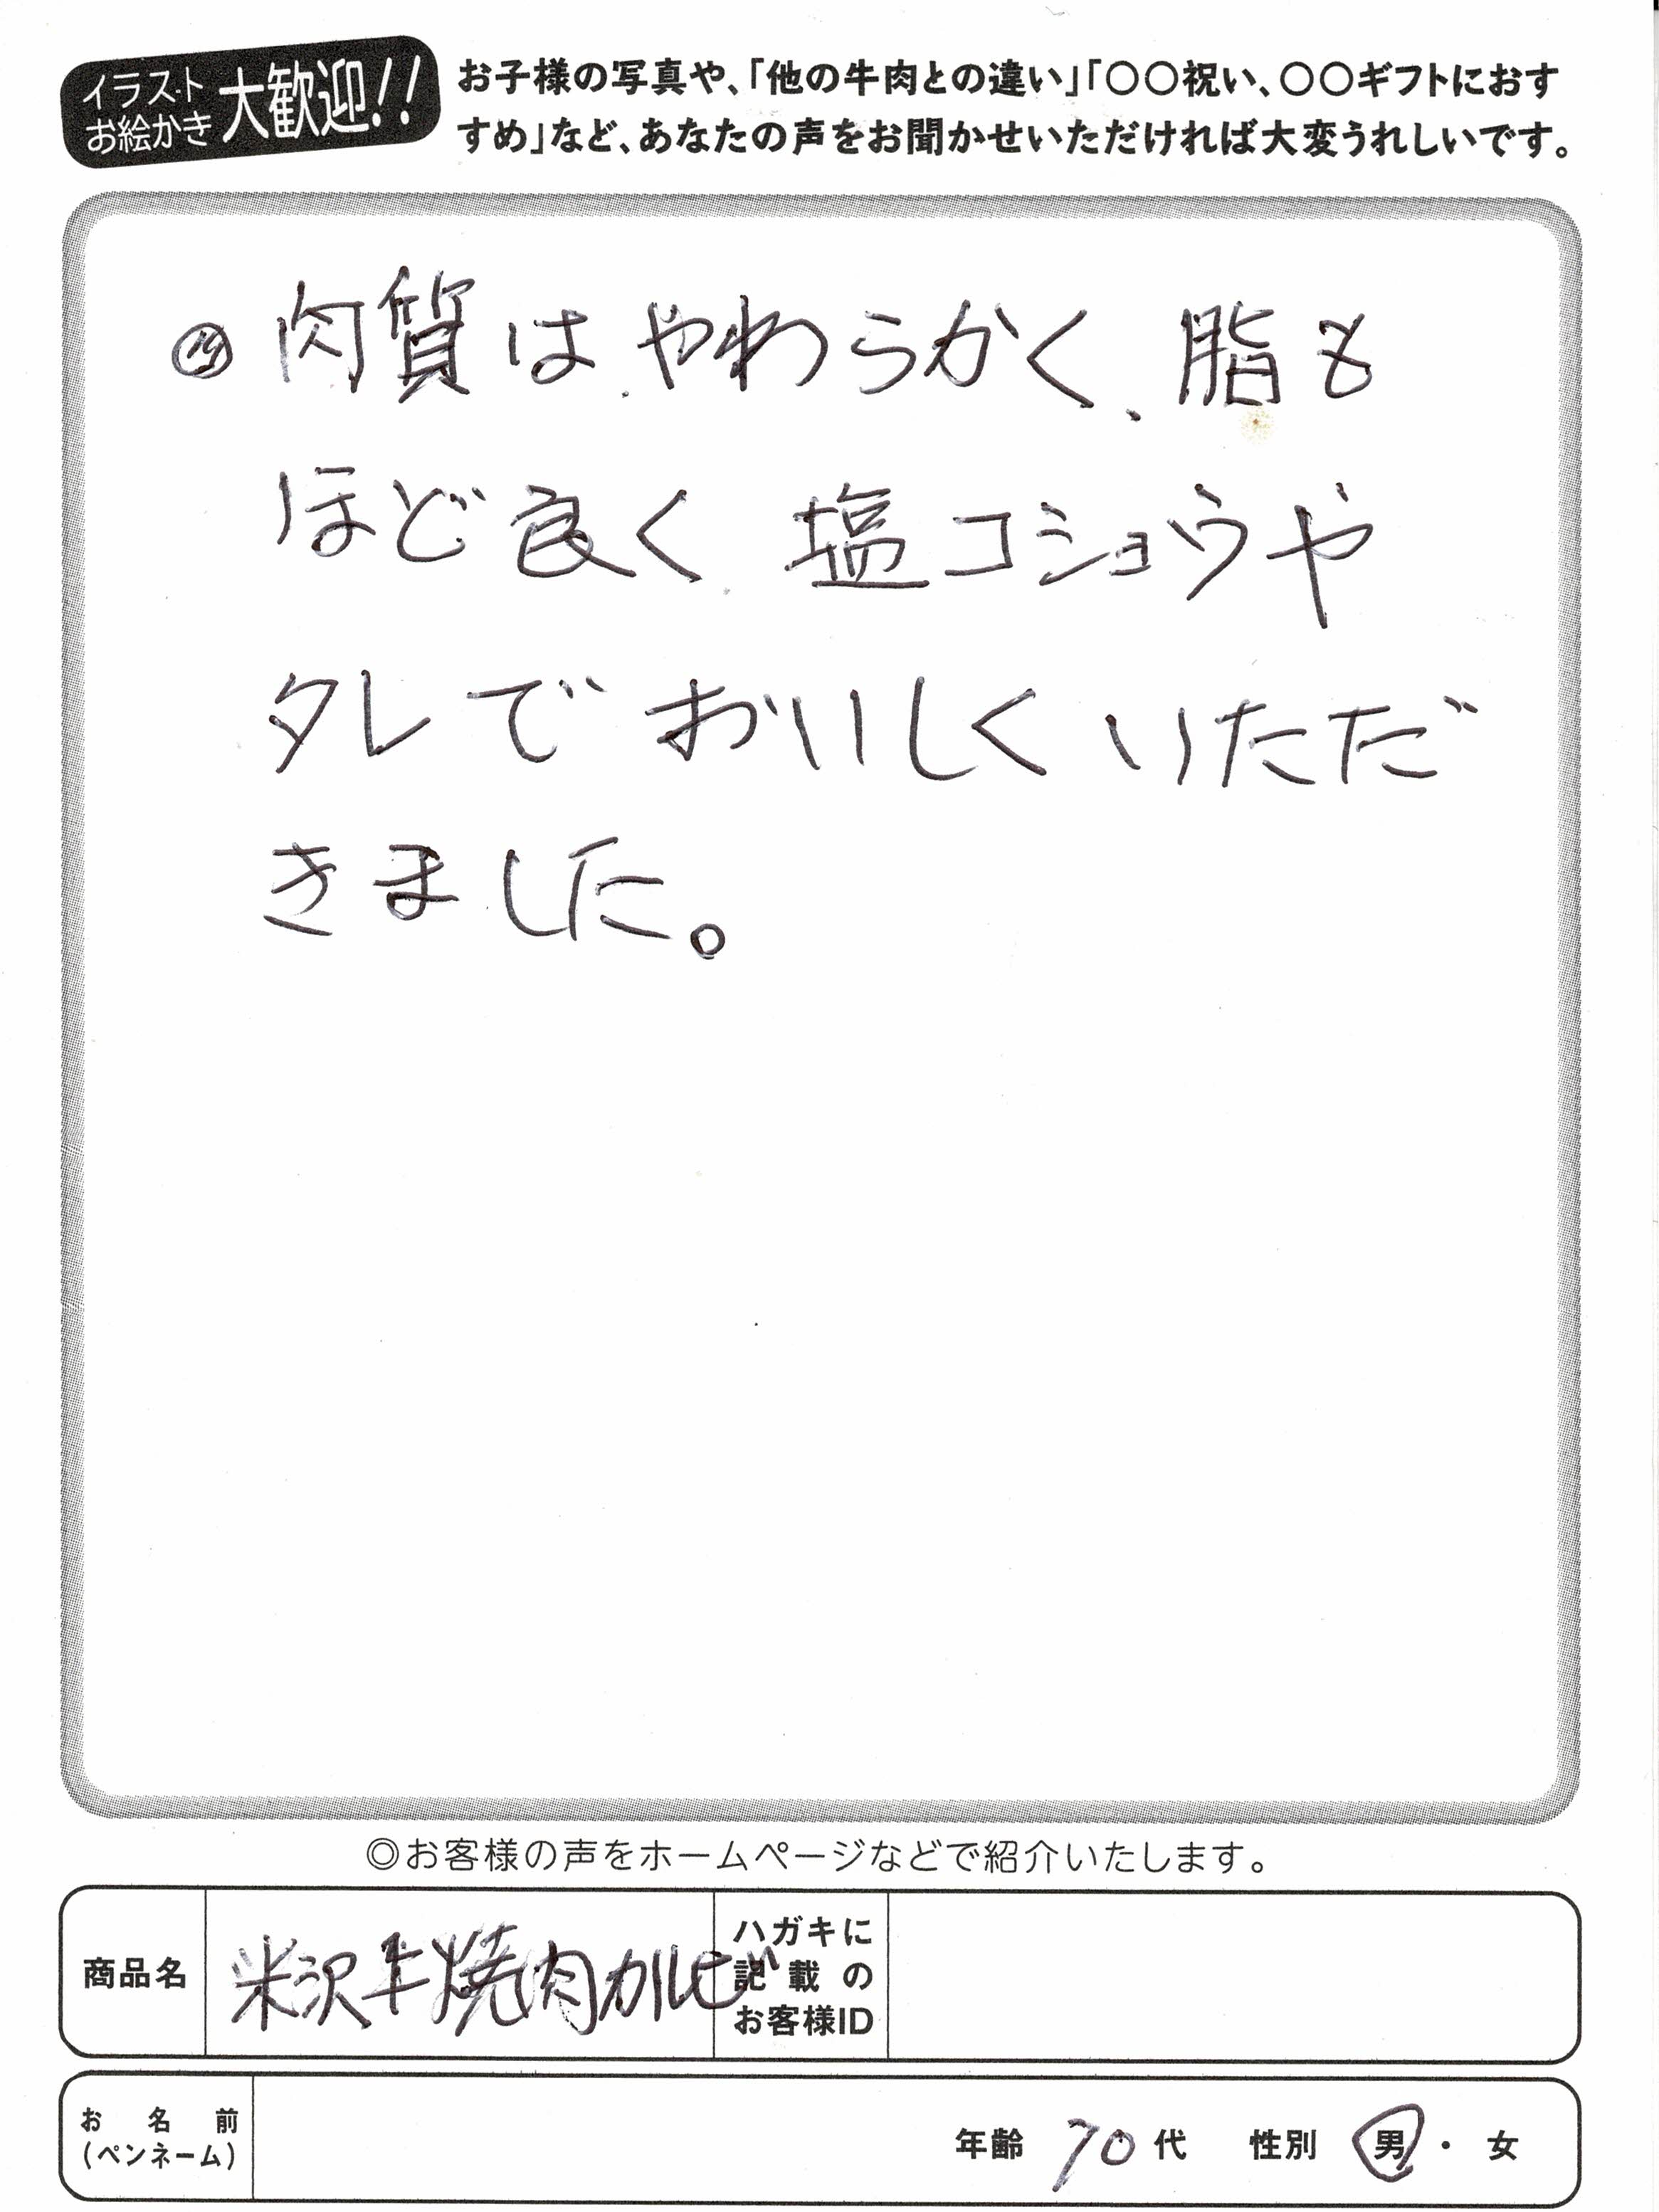 イラスト
お絵かき
大歓迎!!
お子様の写真や、「他の牛肉との違い」「〇〇祝い、〇〇ギフトにおす
すめ」など、あなたの声をお聞かせいただければ大変うれしいです。
肉質は、やわらかく、脂も
ほど良く、塩コショウや
タレでおいしくいただ
きました。
◎お客様の声をホームページなどで紹介いたします。
商品名
米沢牛焼肉カルビ
ハガキに
記載の
お客様ID
お名前
(ペンネーム)
年齢 70代 性別 男・女